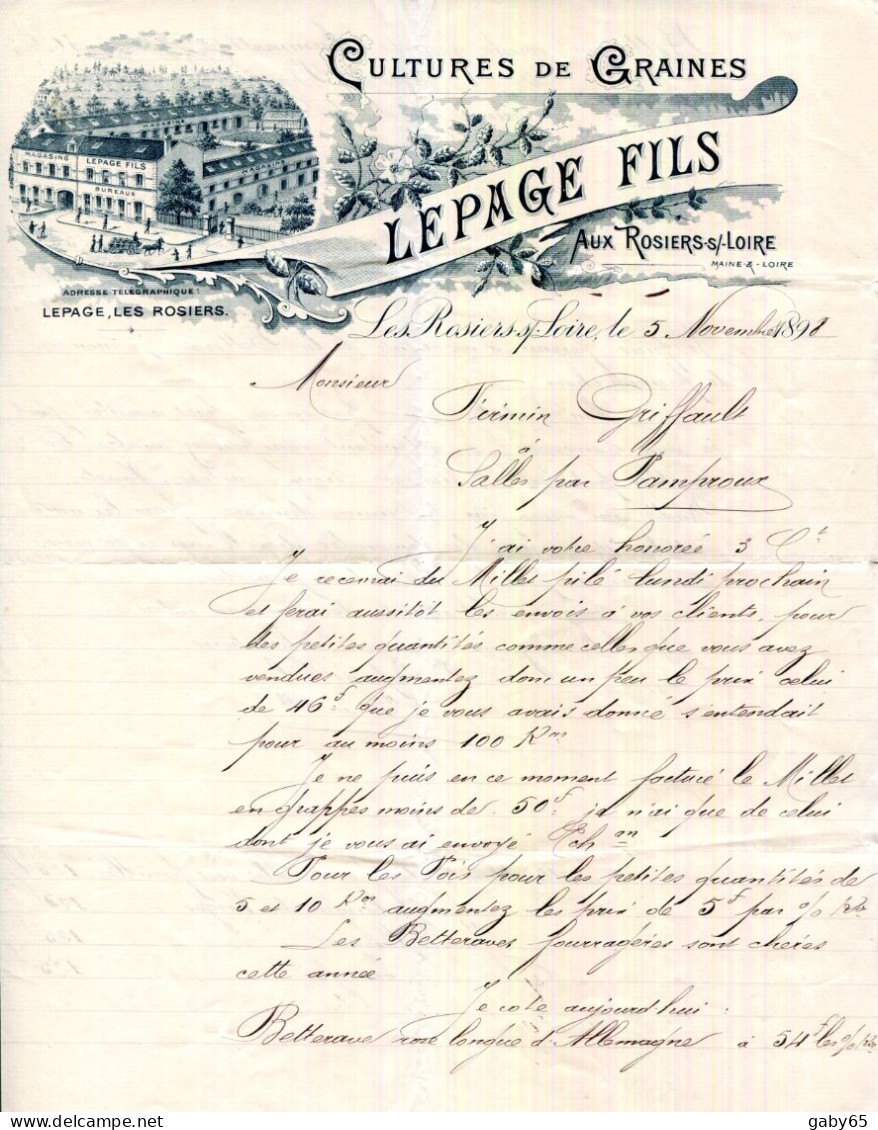 CULTURES DE GRAINES
MAGASINS
LEPAGE FILS
BUREAUX
LEPAGE FILS
AUX ROSIERS-S/-LOIRE
MAINE-&-LOIRE
ADRESSE TÉLÉGRAPHIQUE:
LEPAGE, LES ROSIERS.
Les Rosiers-s/-Loire, le 5 Novembre 1898
Monsieur
Firmin Griffault
à
Salles par Pamproux
J'ai votre honorée 3 Ct
Je recevrai du Millet pilé lundi prochain
et ferai aussitôt les envois à vos clients, pour
des petites quantités comme celles que vous avez
vendues augmentez donc un peu le prix celui
de 46f que je vous avais donné s'entendait
pour au moins 100 Kos
Je ne puis en ce moment facturé le Millet
en grappes moins de 50f je n'ai que de celui
dont je vous ai envoyé Echon
Pour les Pois pour les petites quantités de
5 et 10 Kos augmentez les prix de 5f par % Kos
Les Betteraves fourragères sont chères
cette année
Je cote aujourd'hui :
Betterave rose longue d'Allemagne à 54f les % Kos
gaby65